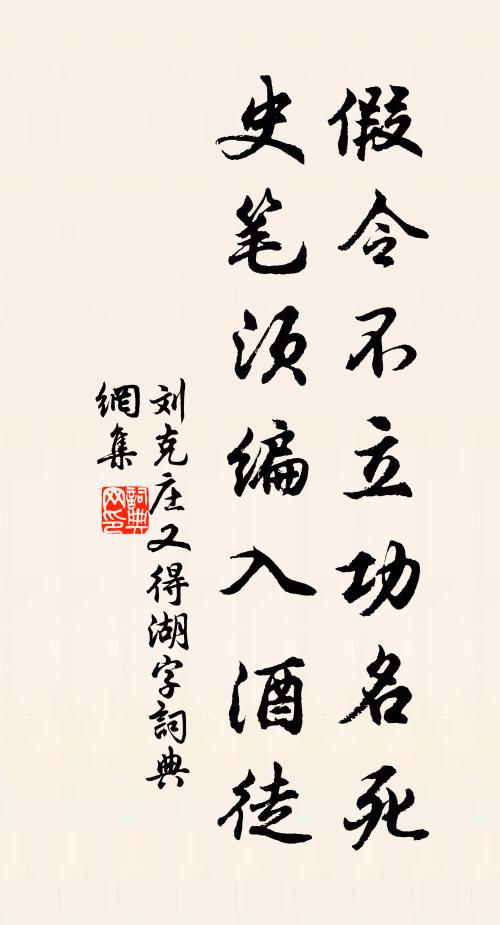 假令不立功名死
史笔须编入酒徒
刘克庄又得湖字詞典
網集
詞典
网印